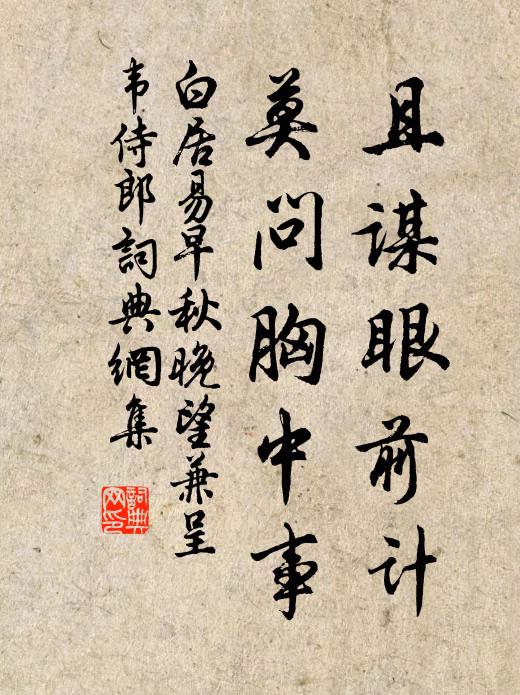 且谋眼前计
莫问胸中事
白居易早秋晚望兼呈
韦侍郎詞典網集
詞典
网印